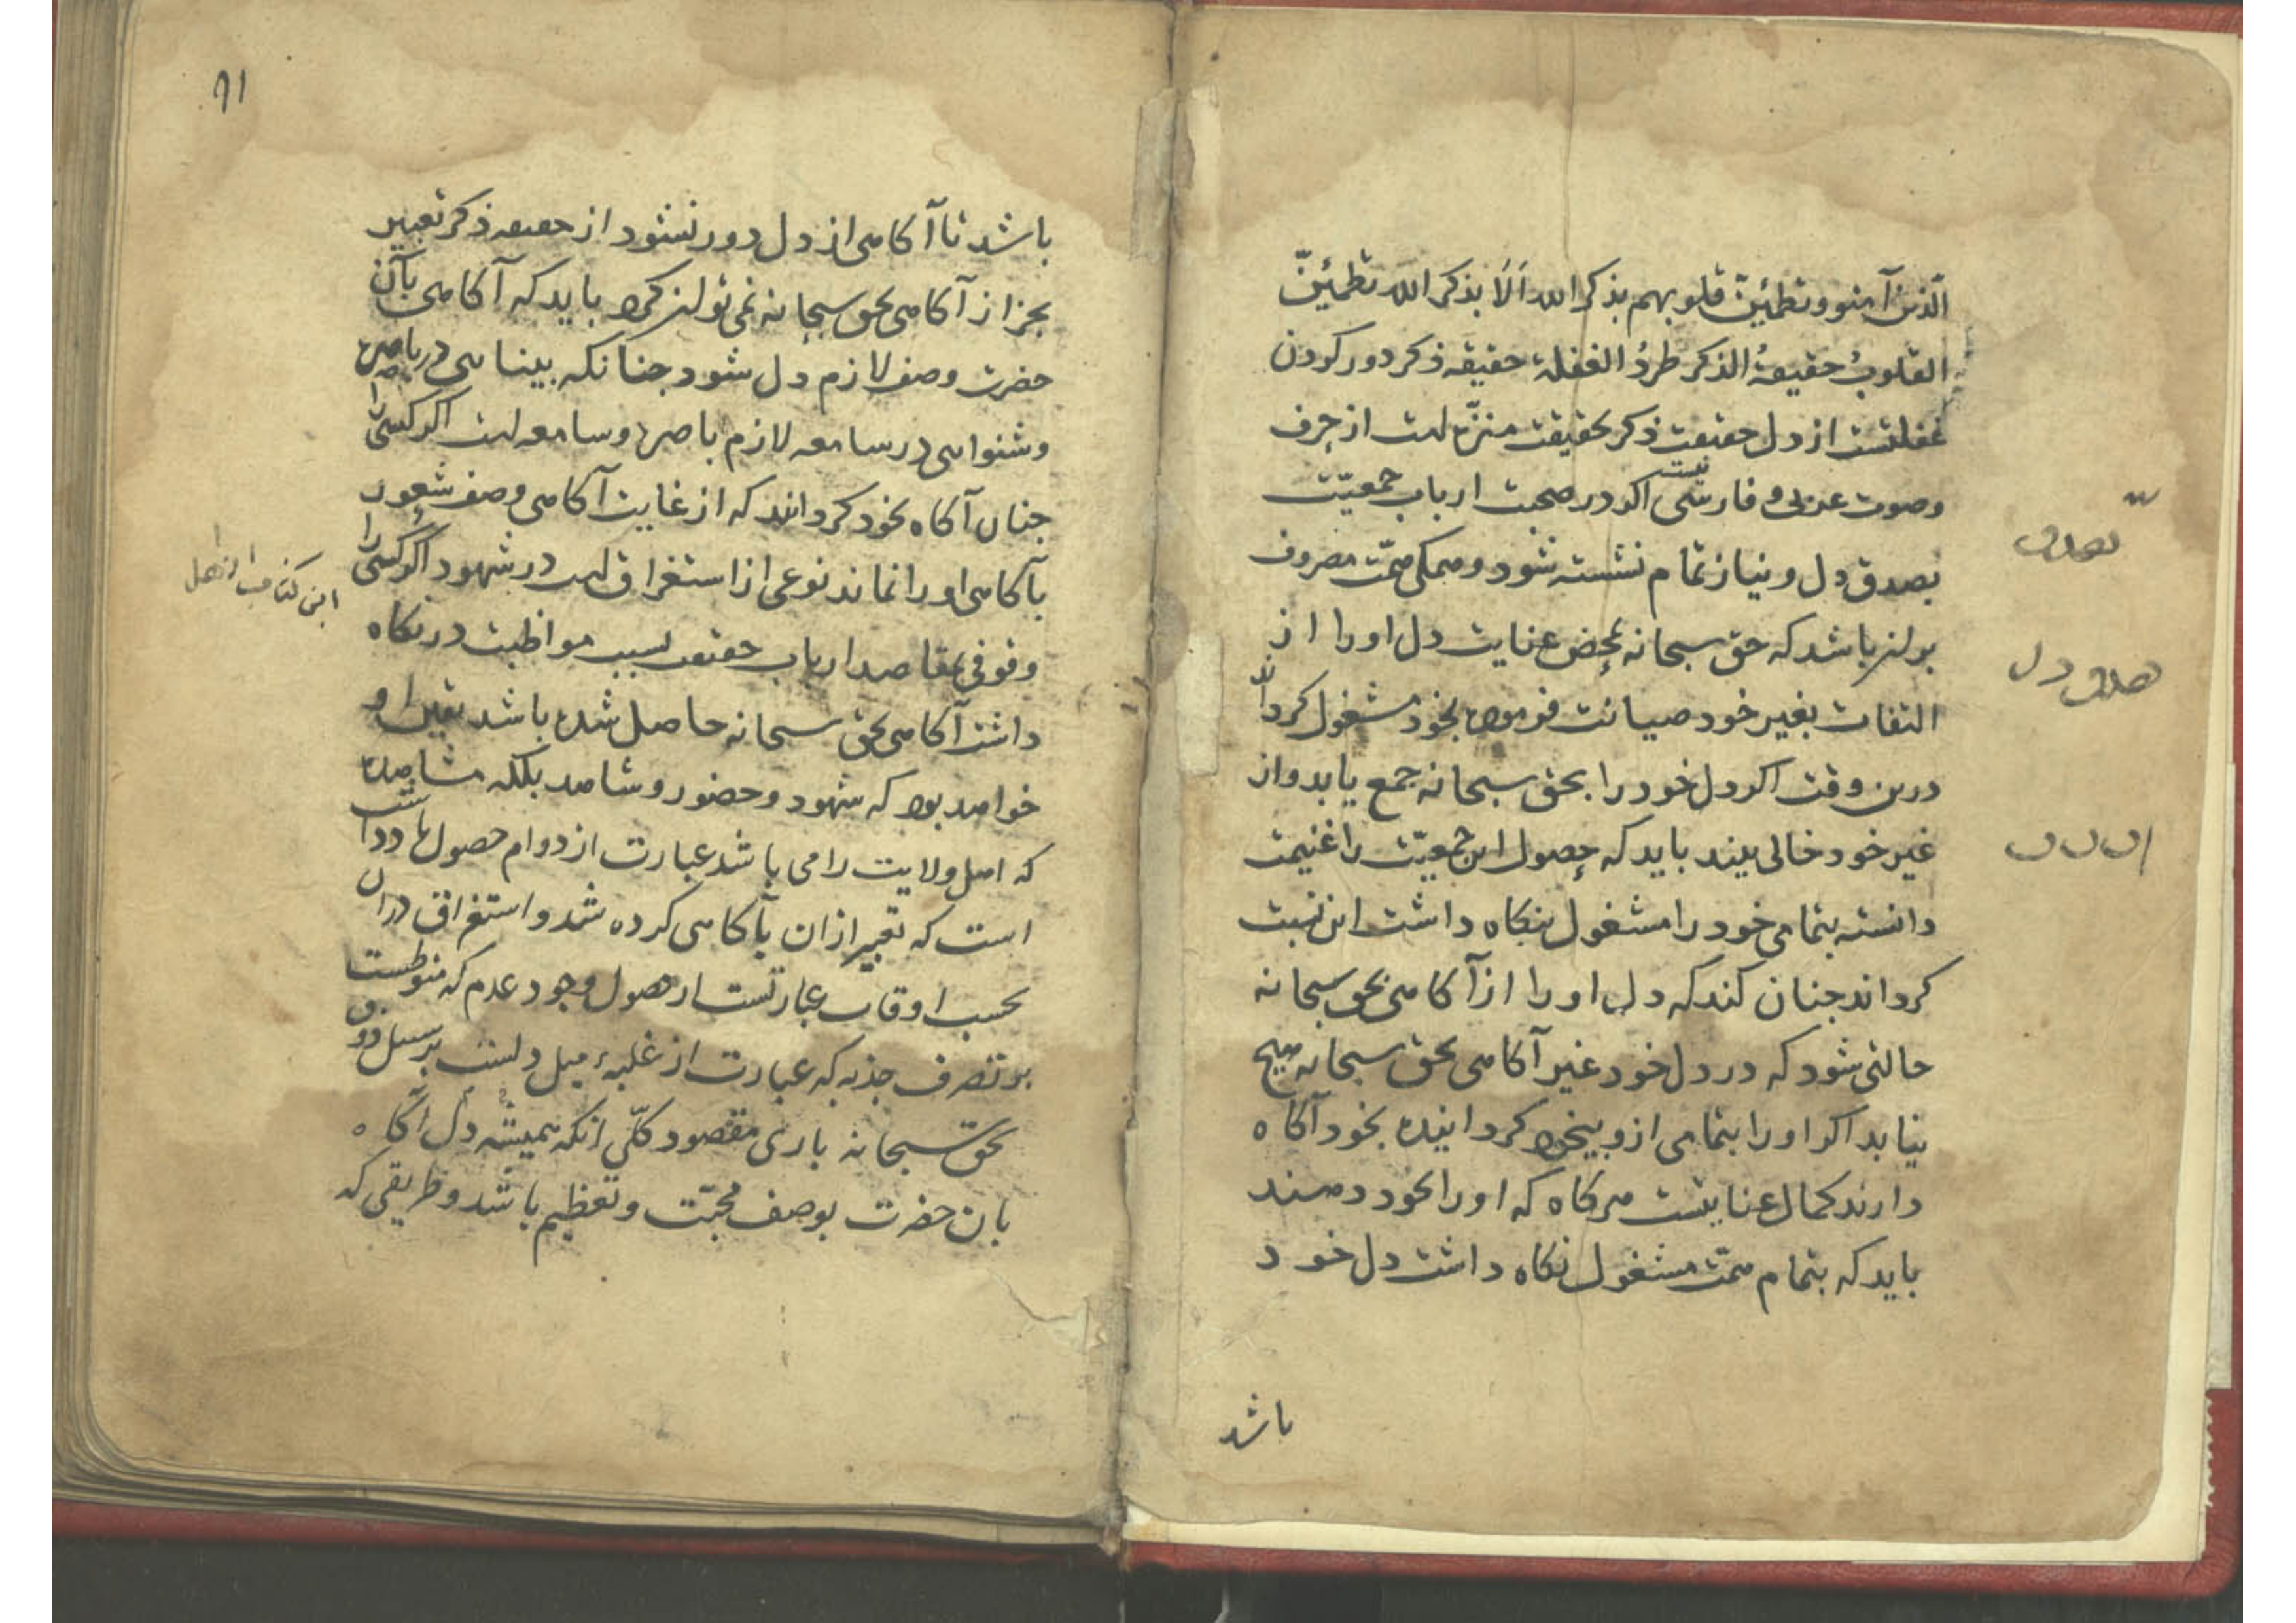 الّذین آمنو وتطمئِنّ قلوبهم بذکر الله اَلَا بذکر الله تطمئِنّ
القلوبُ حقیقهُ الذکر طردُ الغفلة حقیقه ذکر دور کردن
غفلتست از دل حقیقت ذکر بحقیقت منزّه است از حرف
وصوت عربی و فارسی نیست اکر در صحبت ارباب جمعیّت
بصدق دل و نیاز تمام نشسته شود و همکی همّت مصروف
بران باشد که حق سبحانه بمحض عنایت دل او را از
التفات بغیر خود صیانت فرموده بخود مشغول کرداند
درین وقت اکر دل خود را بحق سبحانه جمع یابد و از
غیر خود خالی بیند باید که حصول این جمعیّت را غنیمت
دانسته بتمامی خود را مشغول بنکاه داشت این نسبت
کرداند جنان کند که دل او را از آکاهی بحق سبحانه
حالتی شود که در دل خود غیر آکاهی بحق سبحانه هیچ
نیابد اکر او را بتمامی ازو بیخود کردانیده بخود آکاه
دارند کمال عنایتست هرکاه که او را بخود دهند
باید که بتمام همّت مشغول نکاه داشت دل خود
باشد
بصدق
صدق دل
۹۱
باشد تا آکاهی از دل دور نشود از حقیقه ذکر تعبیر
بجز از آکاهی بحق سبحانه نمی توان کرد باید که آکاهی بآن
حضرت وصف لازم دل شود جنانکه بینایی در باصره
و شنوایی در سامعه لازم باصره و سامعه است اکر کسی را
جنان آکاه بخود کردانند که از غایت آکاهی وصف شعور
بآکاهی او را نماند نوعی از استغراق است در شهود اکر کسی را
وقوفی بمقاصد ارباب حقیقت بسبب مواظبت در نکاه
داشت آکاهی بحق سبحانه حاصل شده باشد یقین او
خواهد بود که شهود و حضور و شاهد بلکه مشاهده
که اهل ولایت را می باشد عبارت از دوام حصول یادداشت
است که تعبیر ازان بآکاهی کرده شد و استغراق دران
بحسب اوقات عبارتست از حصول وجود عدم که منوطست
بر تصرف جذبه که عبارت از غلبهٔ میل دلست بر سبیل ذوق
بحق سبحانه باری مقصود کلّی انکه همیشه دل آکاه
بان حضرت بوصف محبّت و تعظیم باشد و طریقی که